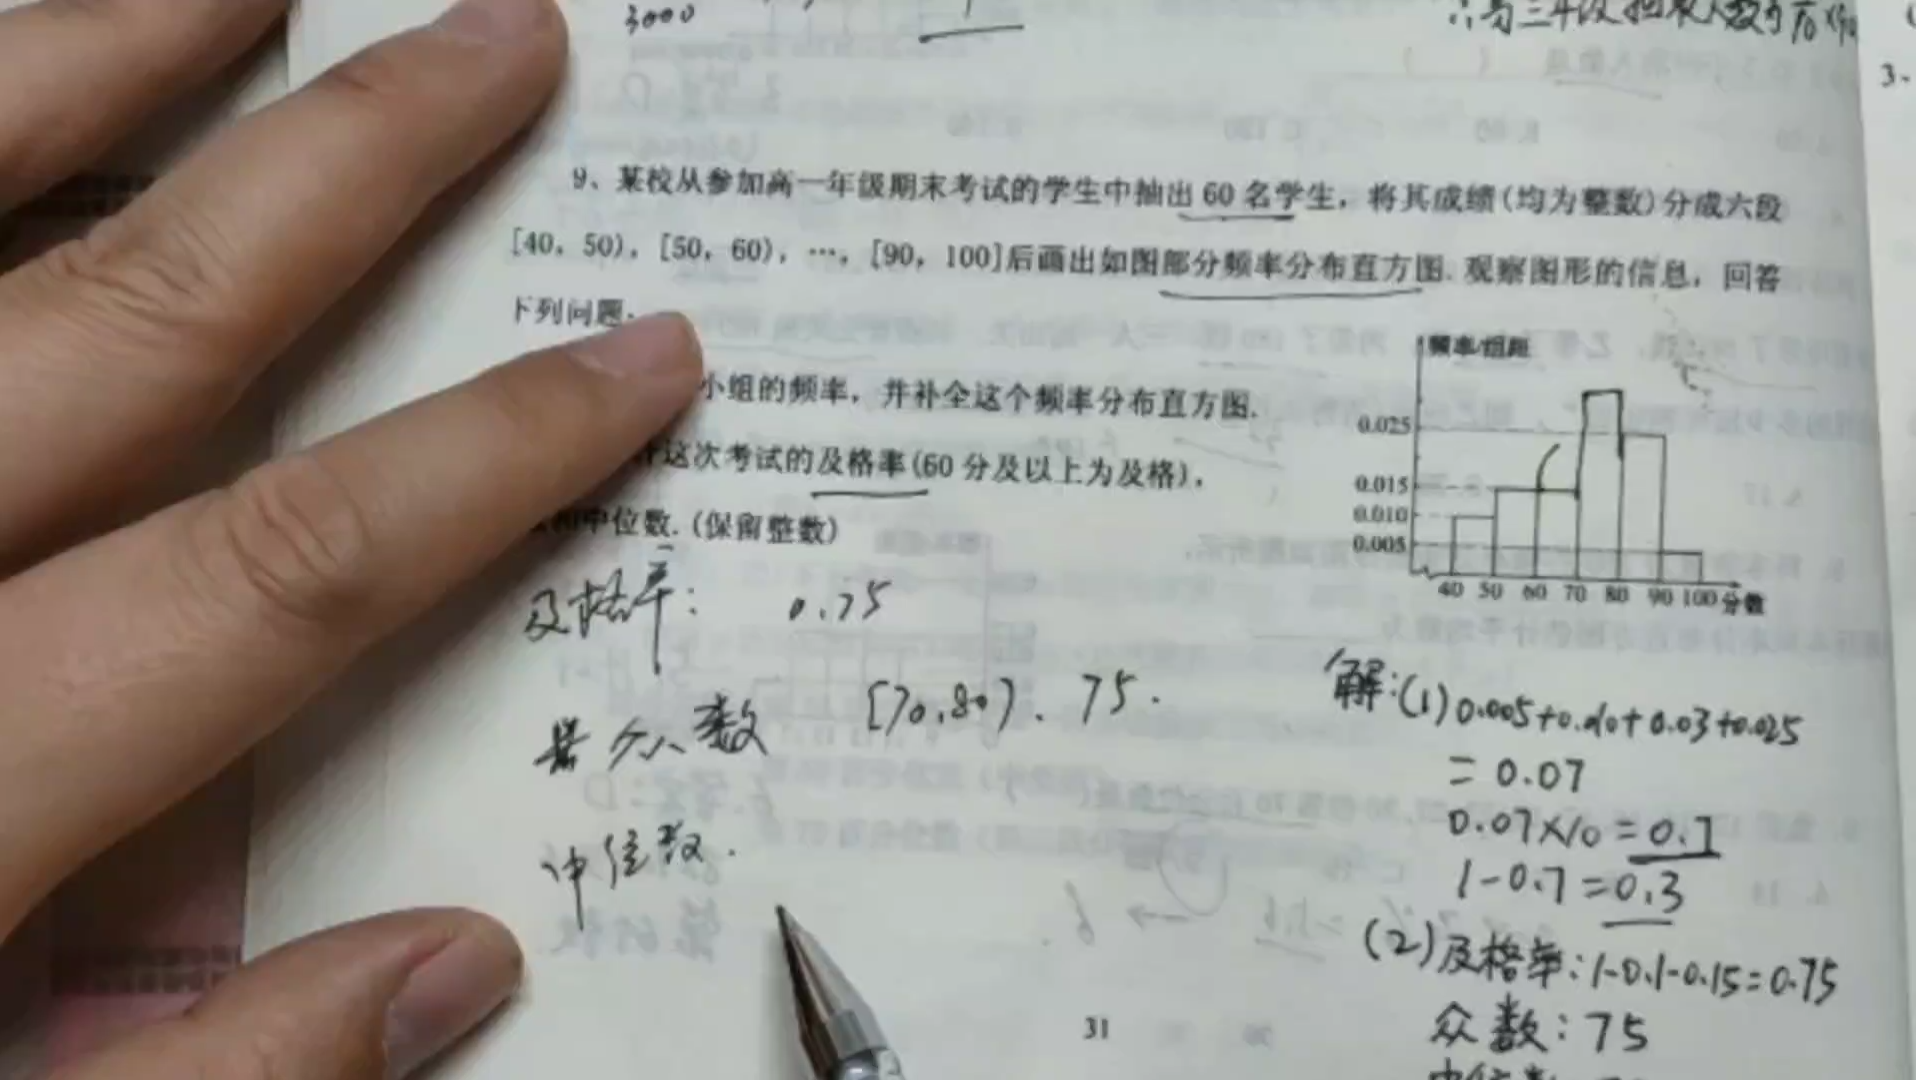 3000
∴高三年级抽取人数为
3.
9、某校从参加高一年级期末考试的学生中抽出 60 名学生，将其成绩(均为整数)分成六段
[40，50)，[50，60)，…，[90，100]后画出如图部分频率分布直方图.观察图形的信息，回答
下列问题:
小组的频率，并补全这个频率分布直方图.
计这次考试的及格率(60 分及以上为及格)，
和中位数.(保留整数)
频率/组距
0.025
0.015
0.010
0.005
40 50 60 70 80 90 100 分数
及格率: 0.75
众数 [70,80). 75.
中位数.
解:(1)0.005+0.010+0.03+0.025
=0.07
0.07×10=0.7
1-0.7=0.3
(2)及格率:1-0.1-0.15=0.75
众数:75
中位数:
31